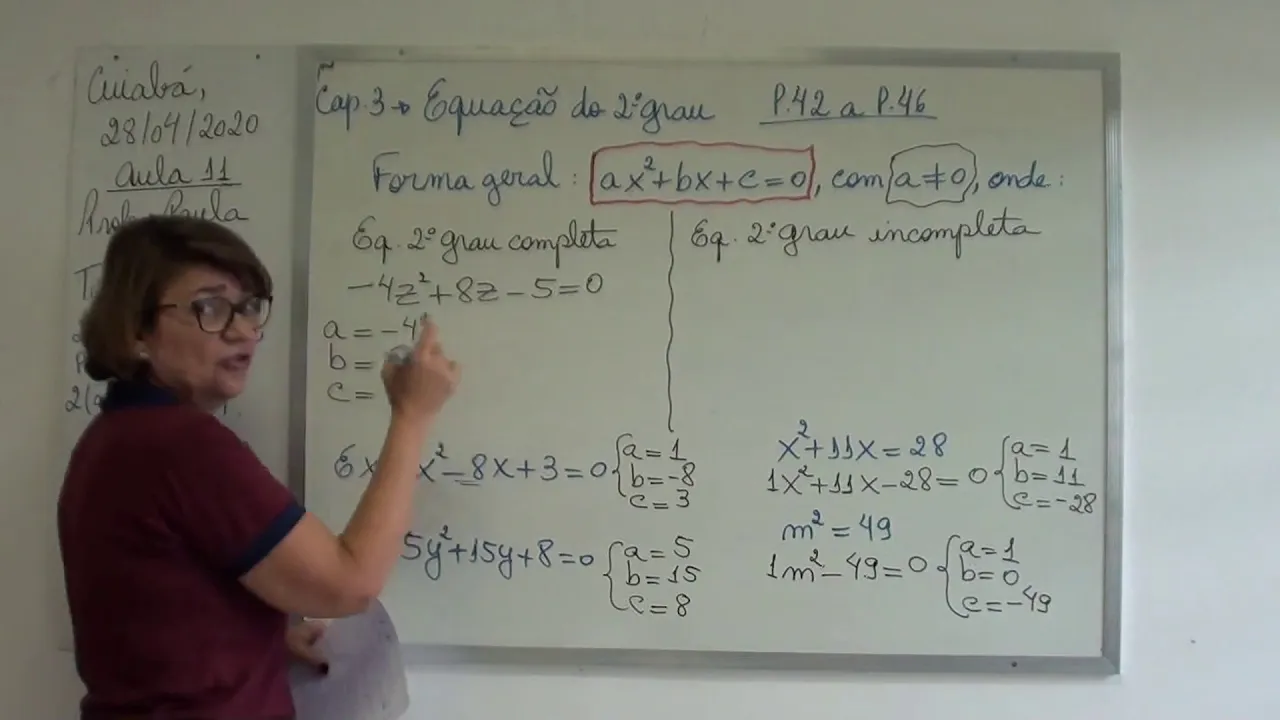 Cuiabá,
28/04/2020
Aula 11
Paula
Cap. 3 → Equação do 2º grau P.42 a P.46
Forma geral: ax²+bx+c=0, com a≠0, onde:
Eq. 2º grau completa
-4z²+8z-5=0
a=-4
b=
c=
Eq. 2º grau incompleta
x²-8x+3=0 { a=1
b=-8
c=3
5y²+15y+8=0 { a=5
b=15
c=8
x²+11x=28
1x²+11x-28=0 { a=1
b=11
c=-28
m²=49
1m²-49=0 { a=1
b=0
c=-49